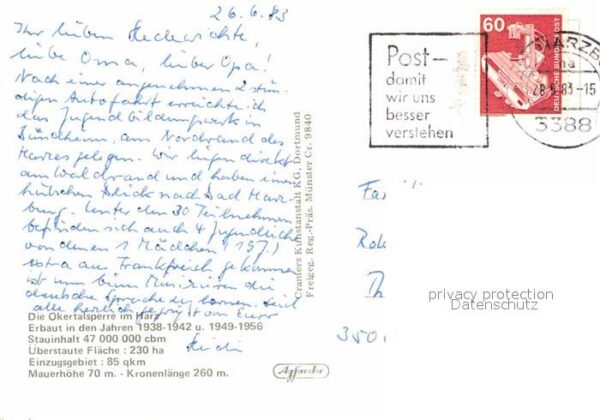 26.6.83
Ihr lieben Heckewichte,
liebe Oma, lieber Opa!
Nach einer angenehmen 2 stün-
digen Autofahrt erreichte ich
das Jugendbildungswerk in
am Nordrand des
Harzes gelegen. Wir liegen direkt
am Waldrand und haben einen
hübschen Blick nach Bad Harz-
burg. Unter den 30 Teilnehmern
befinden sich auch 4 Jugendliche
von denen 1 Mädchen
aus Frankreich gekommen
ist um beim Musizieren die
deutsche Sprache zu lernen. Seid
alle herzlich gegrüßt von Eurer
Heidi
Die Okertalsperre im Harz
Erbaut in den Jahren 1938-1942 u. 1949-1956
Stauinhalt 47 000 000 cbm
Überstaute Fläche : 230 ha
Einzugsgebiet : 85 qkm
Mauerhöhe 70 m. - Kronenlänge 260 m.
Cramers Kunstanstalt KG, Dortmund
Freigeg. Reg.-Präs. Münster Cr. 9840
Agfacolor
Post-
damit
wir uns
besser
verstehen
60
DEUTSCHE BUNDESPOST
HARZB
ha
83-15
3388
Fa
Th
privacy protection
Datenschutz
350